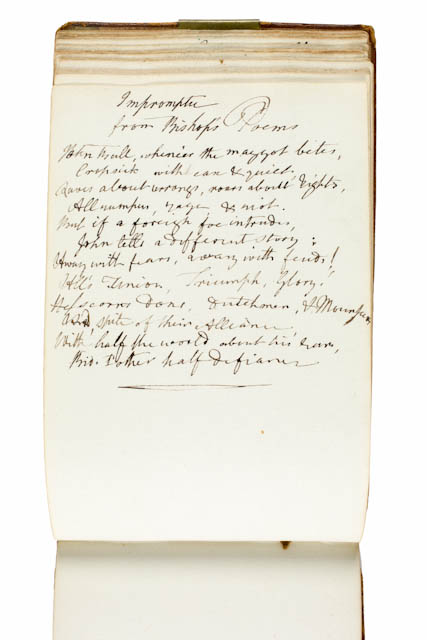 Impromptu
from Bishop's Poems
John Bull, whene'er the maggot bites,
Cropsick with ease & quiet,
Raves about wrongs, roars about rights,
All rumpus, rage & riot.
But if a foreign foe intrudes,
John tells a different story;
Away with fears, away with feuds!
All's Union, Triumph, Glory!
He scorns Dons, Dutchmen, &
And, spite of their Alliance
With half the world about his ears,
Bids t'other half Defiance